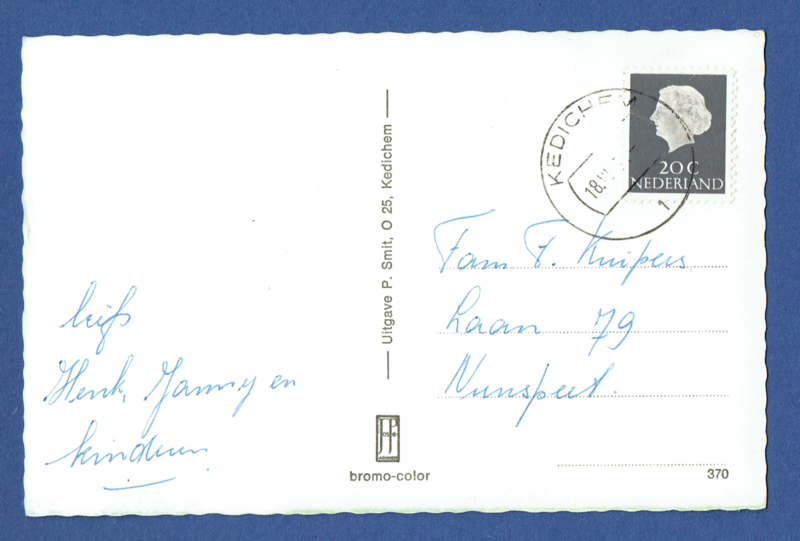 KEDICHEM
18.
1
20 C
NEDERLAND
Uitgave P. Smit, O 25, Kedichem
Fam F. Kuipers
Laan 79
Nunspeet.
Henk, Janny en
kinderen
bromo-color
370